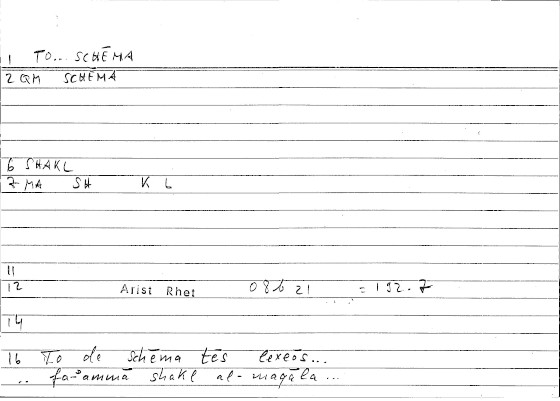 1 TO... SCHĒMA
2 QM SCHĒMA
6 SHAKL
7 MA SH K L
11
12 Arist Rhet 08b 21 = 192.7
14
16 To de schēma tēs lexeōs...
.. fa-ammā shakl al-maqāla...